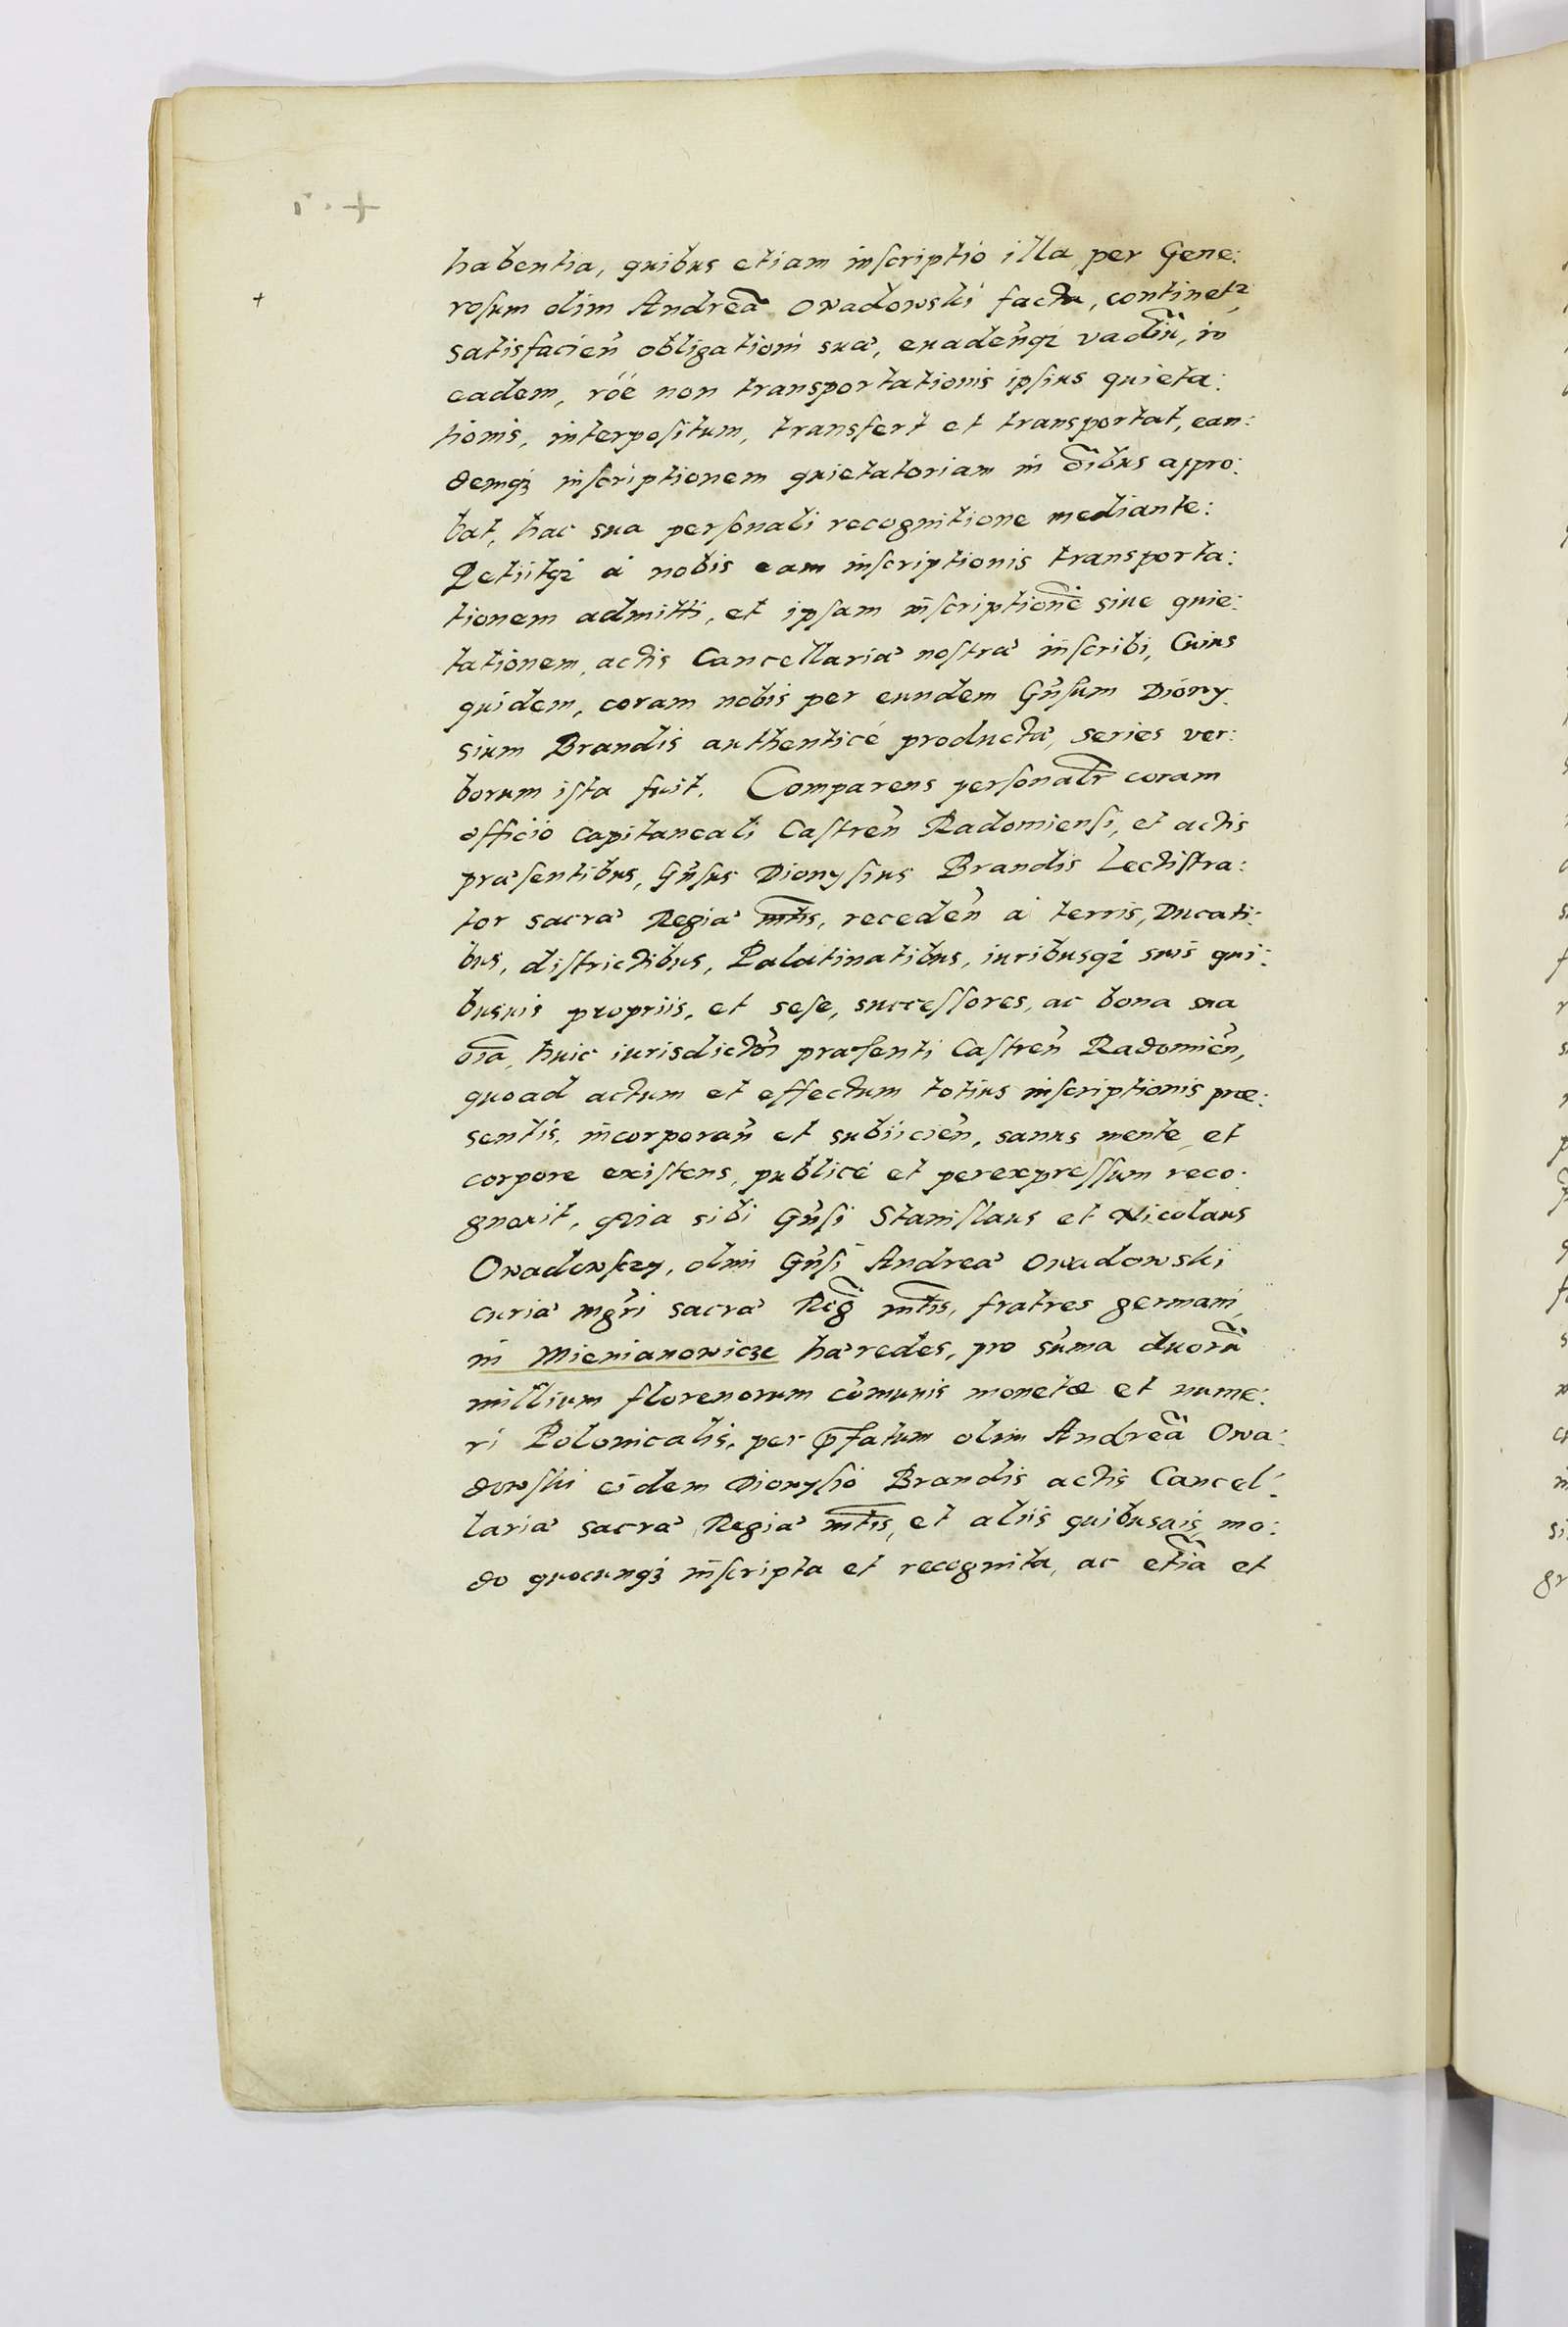 habentia, quibus etiam inscriptio illa per Gene:
rosum olim Andreã Owadowski facta, continet̃,
satisfacień obligationi suæ, euadeńq₃ vadiũ, in
eadem, rõe non transportationis ipsius quieta:
tionis, interpositum, transfert et transportat, ean:
demq₃ inscriptionem quietatoriam in õibus appro:
bat, hac sua personali recognitione mediante:
Petiitq₃ à nobis eam inscriptionis transporta:
tionem admitti, et ipsam inscriptionẽ siue quie:
tationem, actis Cancellariæ nostræ inscribi, Cuius
quidem, coram nobis per eundem Gñsum Diony:
sium Brandis authenticé productæ, series ver:
borum ista fuit. Comparens personalr̃ coram
officio capitaneali Castreń Radomiensi, et actis
præsentibus, Gñsus Dionysius Brandis Lectistra:
tor sacræ Regiæ mt̃is, recedeń à terris, Ducati:
bus, districtibus, Palatinatibus, iuribusq₃ suis qui:
busuis propriis, et sese, successores, ac bona sua
oĩa, huic iurisdictõi præsenti Castreń Radomień,
quoad actum et effectum totius inscriptionis præ:
sentis, incorporań et subiicień, sanus mente, et
corpore existens, publicé et perexpressum reco:
gnouit, Quia sibi Gñsi Stanislaus et Nicolaus
Owadowscy, olim Gñsi Andreæ Owadowski
curiæ mgr̃i sacræ Reg̃ mt̃is, fratres germani,
in Mienianowicze hæredes, pro sũma duorũ
millium florenorum cõmunis monetæ et nume:
ri Polonicalis, per p̃fatum olim Andreã Owa:
dowski eidem Dionysio Brandis actis Cancel:
lariæ sacræ Regiæ mt̃is, et aliis quibusuis, mo:
do quocunq₃ inscripta et recognita, ac etiã et